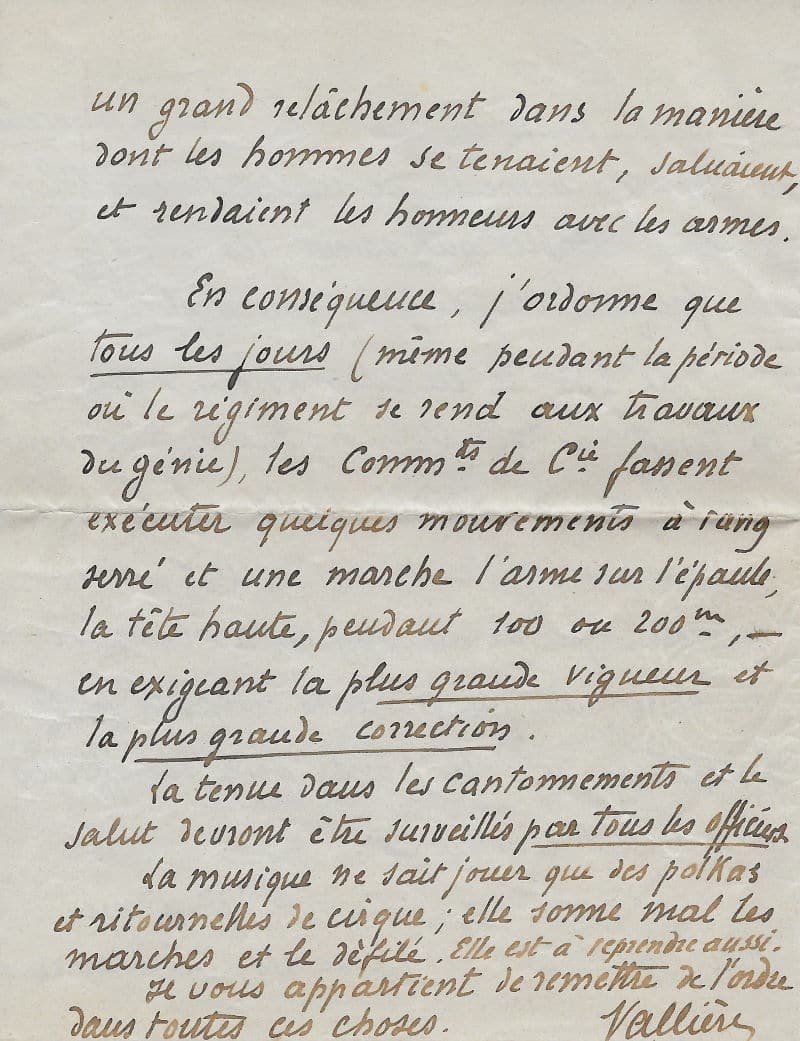 un grand relâchement dans la manière
dont les hommes se tenaient, saluaient,
et rendaient les honneurs avec les armes.
En conséquence, j'ordonne que
tous les jours (même pendant la période
où le régiment se rend aux travaux
du génie), les Comm^ts de C^ie fassent
exécuter quelques mouvements à rang
serré et une marche l'arme sur l'épaule,
la tête haute, pendant 100 ou 200^m, —
en exigeant la plus grande vigueur et
la plus grande correction.
La tenue dans les cantonnements et le
salut devront être surveillés par tous les officiers
La musique ne sait jouer que des polkas
et ritournelles de cirque ; elle sonne mal les
marches et le défilé. Elle est à reprendre aussi.
Il vous appartient de remettre de l'ordre
dans toutes ces choses. Vallière